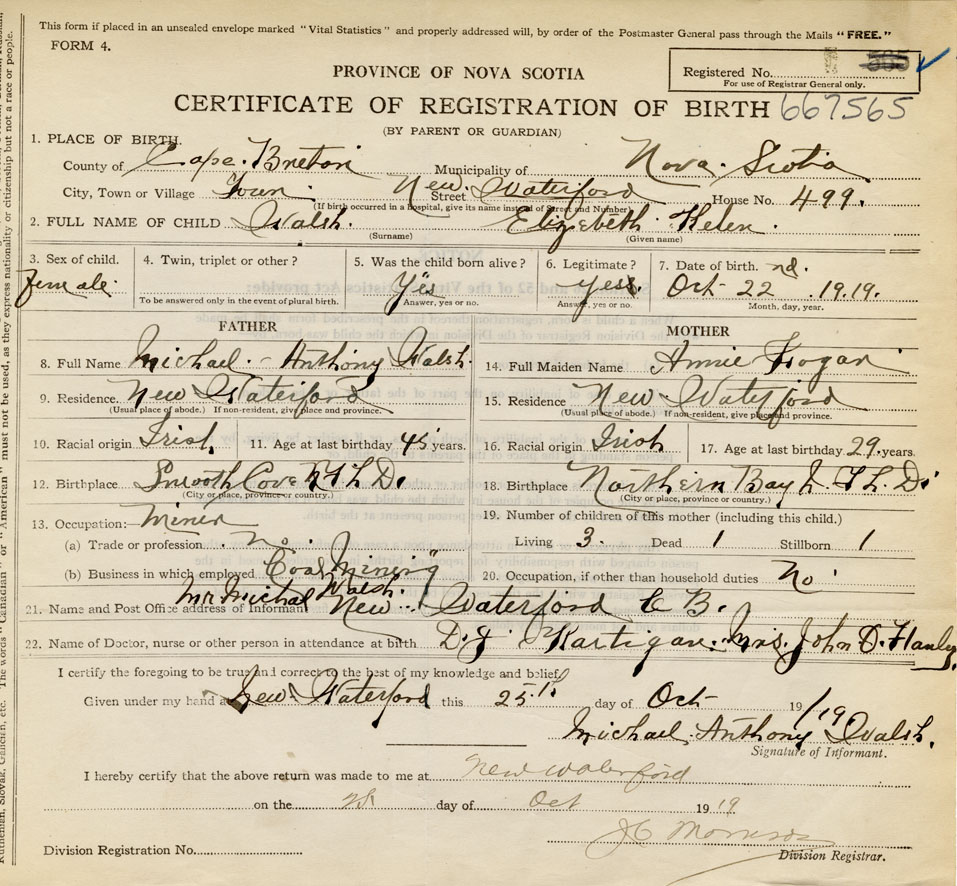 This form if placed in an unsealed envelope marked "Vital Statistics" and properly addressed will, by order of the Postmaster General pass through the Mails "FREE."
FORM 4.
Registered No.
For use of Registrar General only.
PROVINCE OF NOVA SCOTIA
CERTIFICATE OF REGISTRATION OF BIRTH 667565
(BY PARENT OR GUARDIAN)
1. PLACE OF BIRTH.
County of Cape Breton Municipality of Nova Scotia
City, Town or Village Town. Street New Waterford House No. 499.
(If birth occurred in a hospital, give its name instead of Street and Number)
2. FULL NAME OF CHILD Walsh. Elizebeth Helen.
(Surname) (Given name)
3. Sex of child. 4. Twin, triplet or other? 5. Was the child born alive? 6. Legitimate? 7. Date of birth.
female. Yes yess. Oct 22 nd. 1919.
To be answered only in the event of plural birth. Answer, yes or no. Answer, yes or no. Month, day, year.
FATHER MOTHER
8. Full Name Michael Anthony Walsh. 14. Full Maiden Name Annie Fogan
9. Residence. New Waterford 15. Residence New Waterford
(Usual place of abode.) If non-resident, give place and province. (Usual place of abode.) If non-resident, give place and province.
10. Racial origin Irish. 11. Age at last birthday 45 years. 16. Racial origin Irish 17. Age at last birthday 29 years.
12. Birthplace Smooth Cove N F L D. 18. Birthplace Northern Bay N. F L. D.
(City or place, province or country.) (City or place, province or country.)
13. Occupation: Miner 19. Number of children of this mother (including this child.)
(a) Trade or profession no. Living 3. Dead 1 Stillborn 1
(b) Business in which employed Coal Mining 20. Occupation, if other than household duties No
21. Name and Post Office address of Informant Mr Michal Walsh. New Waterford C B.
22. Name of Doctor, nurse or other person in attendance at birth Mrs. John D. Hanley
I certify the foregoing to be true and correct to the best of my knowledge and belief.
Given under my hand at New Waterford this 25th day of Oct 19/19
Michael Anthony Walsh.
Signature of Informant.
I hereby certify that the above return was made to me at New Waterford
on the day of Oct 1919
Division Registration No. Division Registrar.